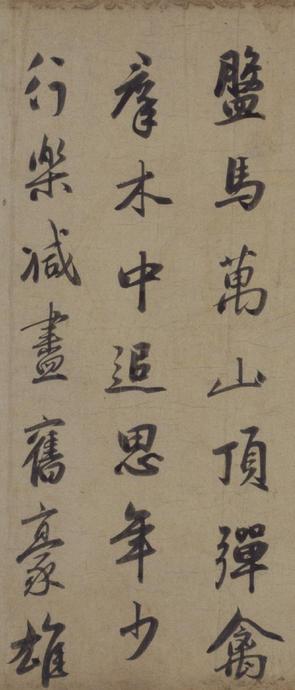 盤馬萬山頂彈禽
羣木中追思年少
行樂減盡舊豪雄